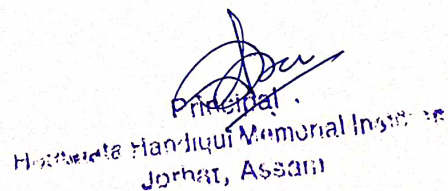 Principal
Handiqui Memorial Institute
Jorhat, Assam